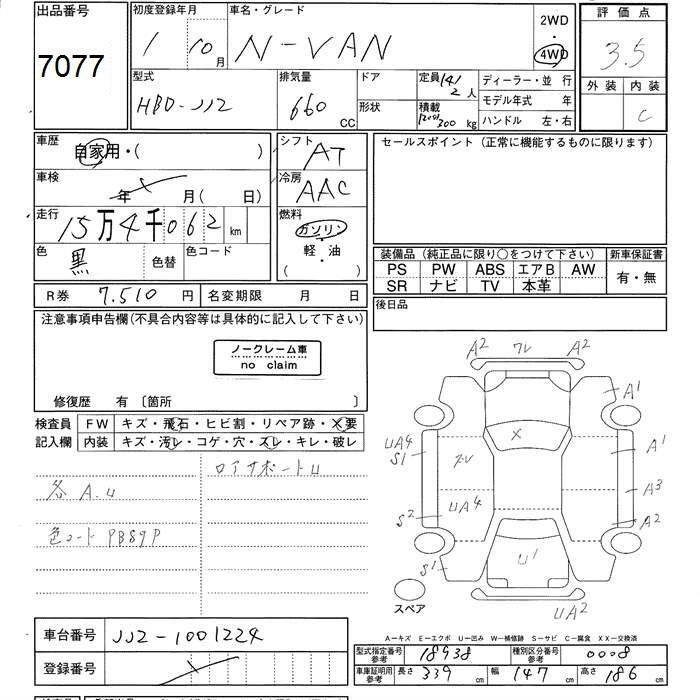 出品番号 初度登録年月 車名・グレード 2WD 評価点
7077 1 10月 N-VAN 4WD 3.5
型式 排気量 ドア 定員 141 2人 ディーラー・並行 外装 内装
HBD-JJ2 660 CC 形状 積載 300 kg モデル年式 年 C
ハンドル 左・右
車歴 自家用・( ) シフト AT セールスポイント (正常に機能するものに限ります)
車検 年 月 ( 日) 冷房 AAC
走行 15万4千062 km 燃料 ガソリン
色 黒 色替 色コード 軽・油 ( )
装備品 (純正品に限り○をつけて下さい) 新車保証書
PS PW ABS エアB AW 有・無
SR ナビ TV 本革
R券 7.510 円 名変期限 月 日 後日品
注意事項申告欄(不具合内容等は具体的に記入して下さい)
ノークレーム車
no claim
修復歴 有 〔箇所 〕
検査員 FW キズ・飛石・ヒビ割・リペア跡・X要
記入欄 内装 キズ・汚レ・コゲ・穴・スレ・キレ・破レ
ロアサポートU
各A.U
色コード PB89P
A2 ワレ A2
A1
UA4 S1 X A1
A3
S2 UA4 A2
S1 U1
スペア UA2
A−キズ E−エクボ U−凹み W−補修跡 S−サビ C−腐食 XX−交換済
車台番号 JJ2-1001224
型式指定番号 参考 18938 種別区分番号 参考 0008
登録番号
車庫証明用 参考 長さ 339 cm 幅 147 cm 高さ 186 cm